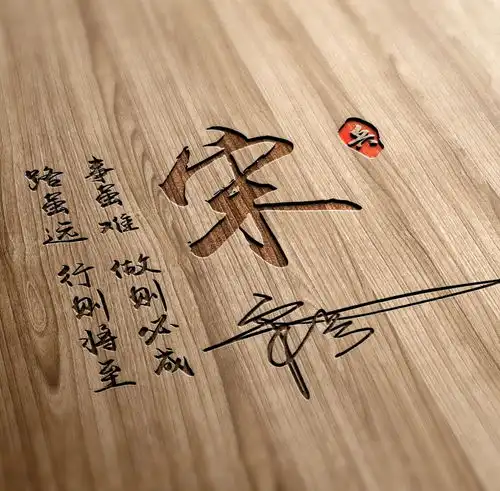 宋
事虽难 做则必成
路虽远 行则将至